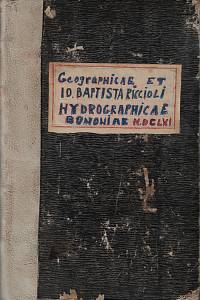 Geographicae, ET
IO. BAPTISTA RICCIOLI
HYDROGRAPHICAE
BONONIAE MDCLXI